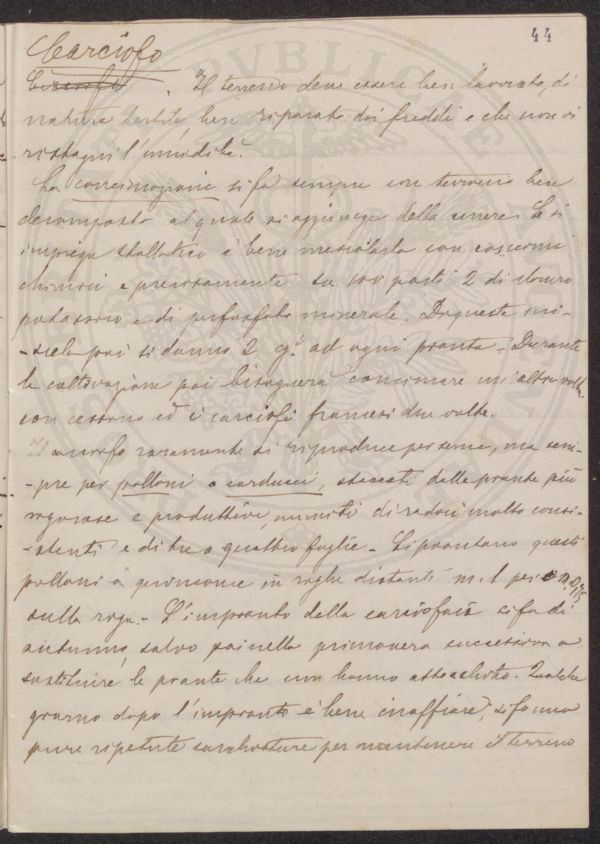 44
Carciofo
Carciofo. Il terreno deve essere ben lavorato, di
natura fertile, ben riparato dai freddi e che non vi
ristagni l'umidità.
La concimazione si fa sempre con terreno ben
decomposto al quale si aggiunge della cenere. Se si
impiega stallatico è bene mescolarlo con concimi
chimici e precisamente su 100 parti 2 di cloruro
potassico e di perfosfato minerale. Di queste mi-
-scele poi si danno 2 Cg.i ad ogni pianta. Durante
la coltivazione poi bisognerà concimare un'altra volta
con cessino ed i carciofi francesi due volte.
Il carciofo raramente si riproduce per seme, ma sem-
-pre per polloni o carducci, staccati dalle piante più
vigorose e produttive, muniti di radici molto consi-
-stenti e di tre o quattro foglie - Si piantano questi
polloni a quinconce in righe distanti m. 1 per
sulla riga. - L'impianto della carciofaia si fa di
autunno, salvo poi nella primavera successiva a
sostituire le piante che non hanno attecchito. Qualche
giorno dopo l'impianto è bene inaffiare, si fanno
pure ripetute sarchiature per mantenere il terreno